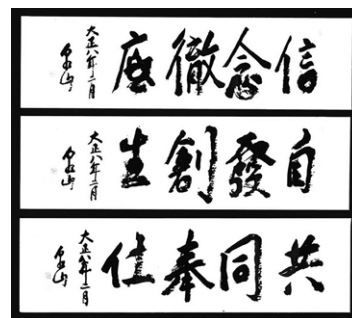 信念徹底
大正八年二月
自發創生
大正八年二月
共同奉仕
大正八年二月